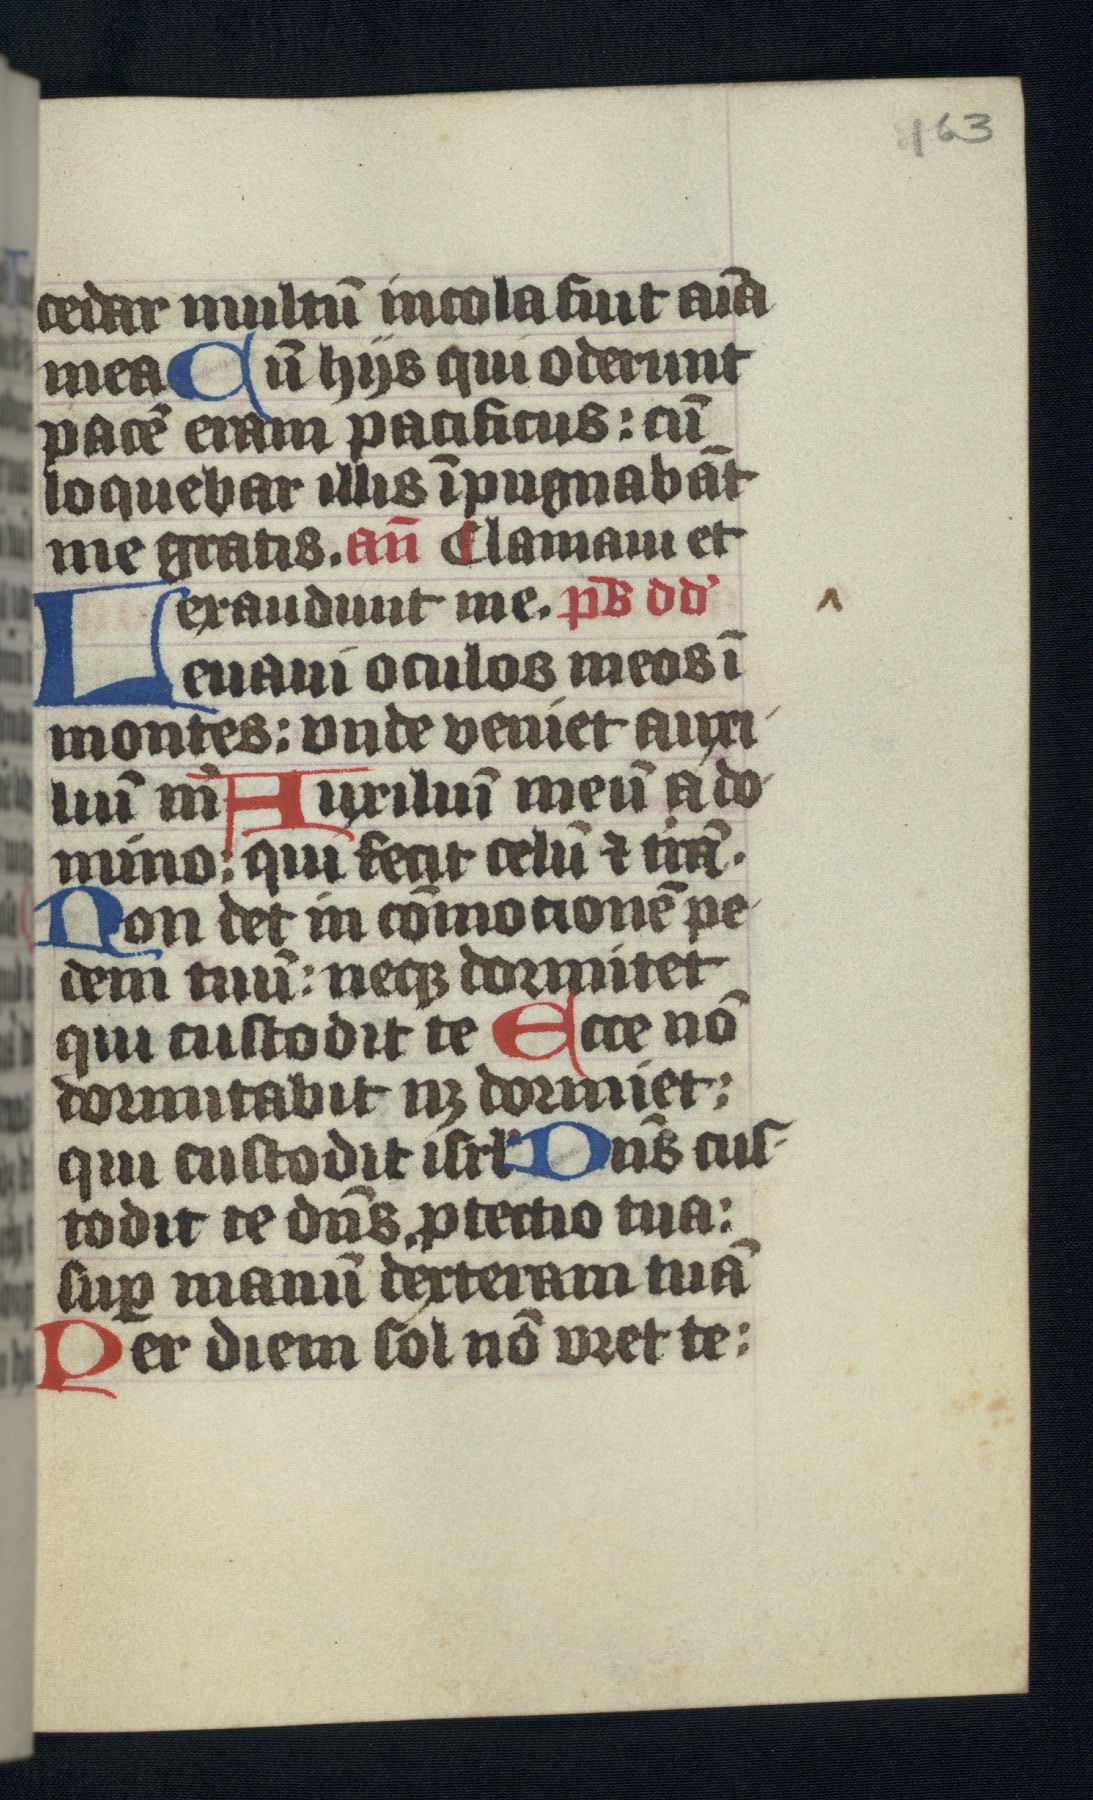 163
cedar multū incola fuit aīa
mea Cū hijs qui oderunt
pacē eram pacificus: cū
loquebar illis īpugnabāt
me gratis. añ Clamaui et
exaudiuit me. ps dd
Leuaui oculos meos ī
montes: vnde veniet auxi
liuī m̄ Auxiliuī meū a do
mino: qui fecit celū ⁊ t̄rā.
Non det in cōmocionē pe
dem tuū: neqꝫ dormitet
qui custodit te Ecce nō
dormitabit nꝫ dormiet:
qui custodit isrl' Dn̄s cus
todit te dn̄s ꝓtectio tua:
suꝑ manū dexteram tuā
Per diem sol nō vret te: